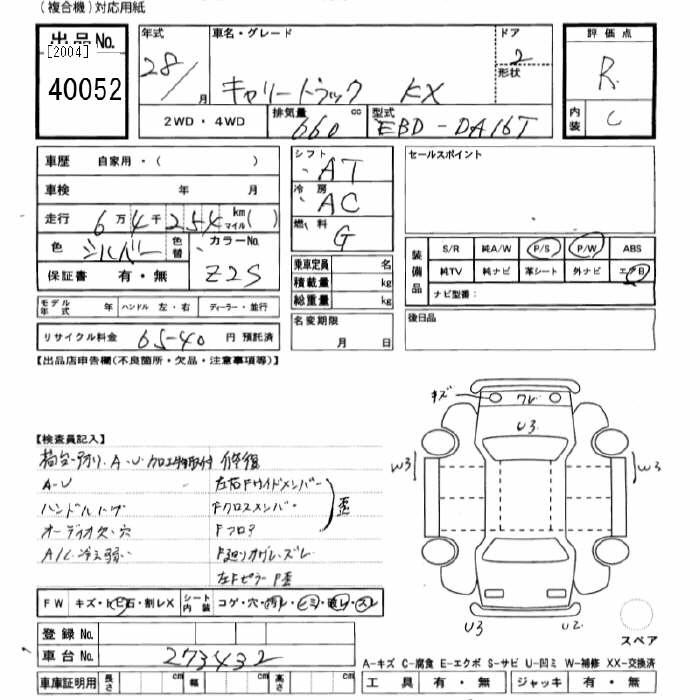 (複合機)対応用紙
出品No.
[2004]
40052
年式
28/
月
車名・グレード
キャリートラック KX
ドア
2
形状
評価点
R
内装
C
2WD・4WD
排気量 660 cc
型式 EBD-DA16T
車歴 自家用・( )
車検 年 月
走行 6万4千254 km マイル ( )
色 シルバー 色替
カラーNo. Z2S
保証書 有・無
モデル年式 年 ハンドル 左・右 ディーラー・並行
リサイクル料金 6540 円 預託済
シフト AT
冷房 AC
燃料 G
乗車定員 名
積載量 kg
総重量 kg
名変期限
月 日
セールスポイント
装備品
S/R 純A/W P/S P/W ABS
純TV 純ナビ 革シート 外ナビ エアB
ナビ型番:
後日品
【出品店申告欄(不良箇所・欠品・注意事項等)】
【検査員記入】
A・U 加工物取付 修復
A-U
左右Fサイドメンバー
ハンドル
Fクロスメンバー
歪
オーディオ欠・穴
Fフロア
A/C 冷え弱い
左Fピラー 歪
キズ
ワレ
U3
W3
W3
U3
U2
スペア
FW キズ・ヒビ石・割レX
シート内装 コゲ・穴・汚レ・シミ・破レ・スレ
登録No.
車台No. 273432
車庫証明用 長さ cm 幅 cm 高さ cm
A-キズ C-腐食 E-エクボ S-サビ U-凹ミ W-補修 XX-交換済
工具 有・無 ジャッキ 有・無